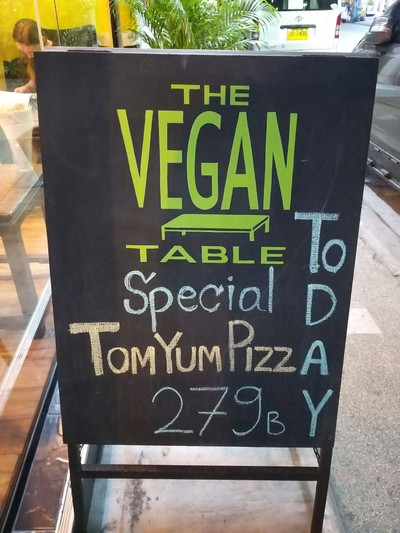 THE
VEGAN
TABLE
Special
TOMYUM PIZZA
279B
TODAY